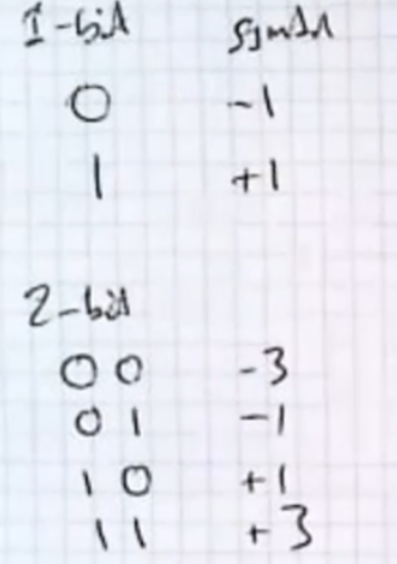 1-bit symbol
0 -1
1 +1
2-bit
00 -3
01 -1
10 +1
11 +3